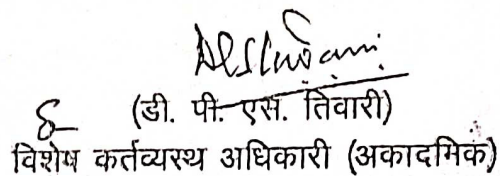 (डी. पी. एस. तिवारी)
विशेष कर्तव्यस्थ अधिकारी (अकादमिक)